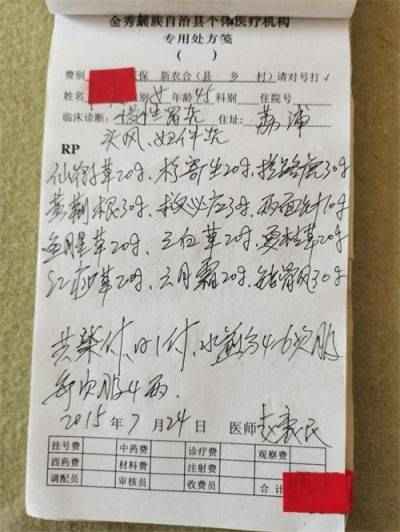 金秀瑶族自治县个体医疗机构
专用处方笺
( )
费别 保 新农合(县 乡 村)请对号打✓
姓名 别 女 年龄 45 科别 住院号
临床诊断:慢性胃炎 住址:荔浦
头风、妇件炎
RP
仙鹤草20g、寄生20g、拦路虎30g
荆根30g、救必应3g、两面针10g
鱼腥草20g、三白草20g、夏枯草20g
红草20g、六月霜20g、钻骨风30g
共柒付,日1付,水煎分4-6次服
每次服4两.
2015年7月24日 医师 赵
挂号费 中药费 诊疗费 观察费
西药费 材料费 注射费
调配员 审核员 收费员 合计